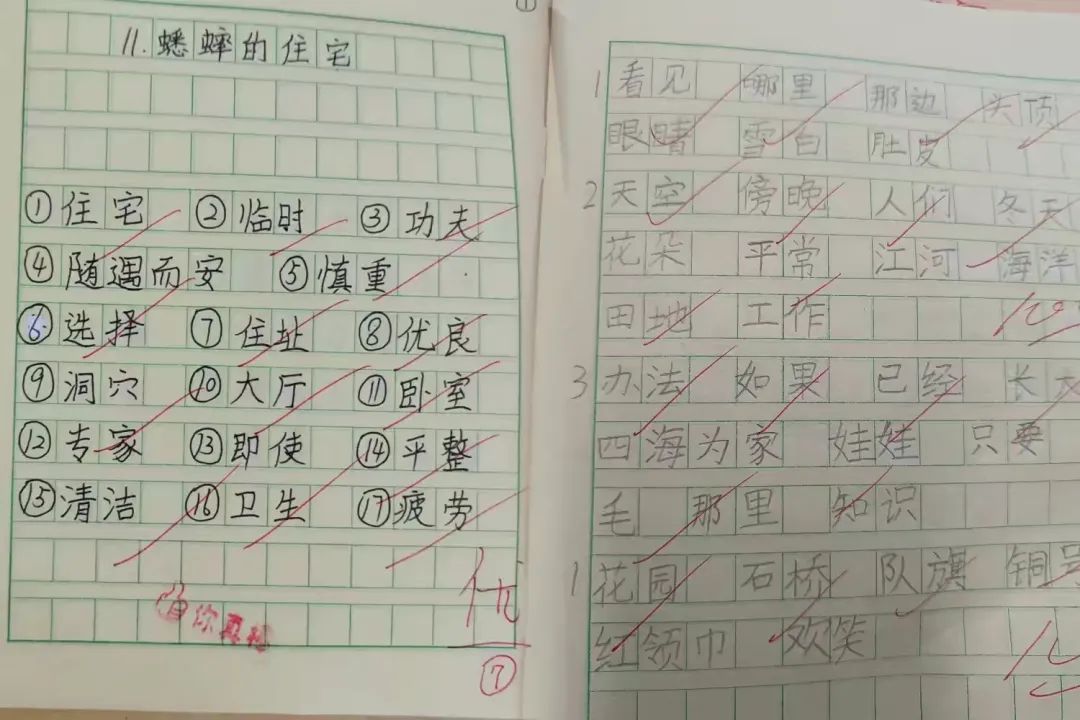 11.蟋蟀的住宅
①住宅 ②临时 ③功夫
④随遇而安 ⑤慎重
⑥选择 ⑦住址 ⑧优良
⑨洞穴 ⑩大厅 ⑪卧室
⑫专家 ⑬即使 ⑭平整
⑮清洁 ⑯卫生 ⑰疲劳
优
⑦
1 看见 哪里 那边 头顶
眼睛 雪白 肚皮
2 天空 傍晚 人们 冬天
花朵 平常 江河 海洋
田地 工作
3 办法 如果 已经 长大
四海为家 娃娃 只要
毛 那里 知识
1 花园 石桥 队旗 铜号
红领巾 欢笑